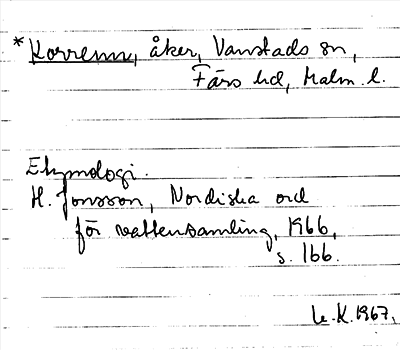 *Korrenn, åker, Vanstads sn,
Färs hd, Malm. l.
Etymologi.
H. Jonsson, Nordiska ord
för vattensamling, 1966,
s. 166.
K. 1967.